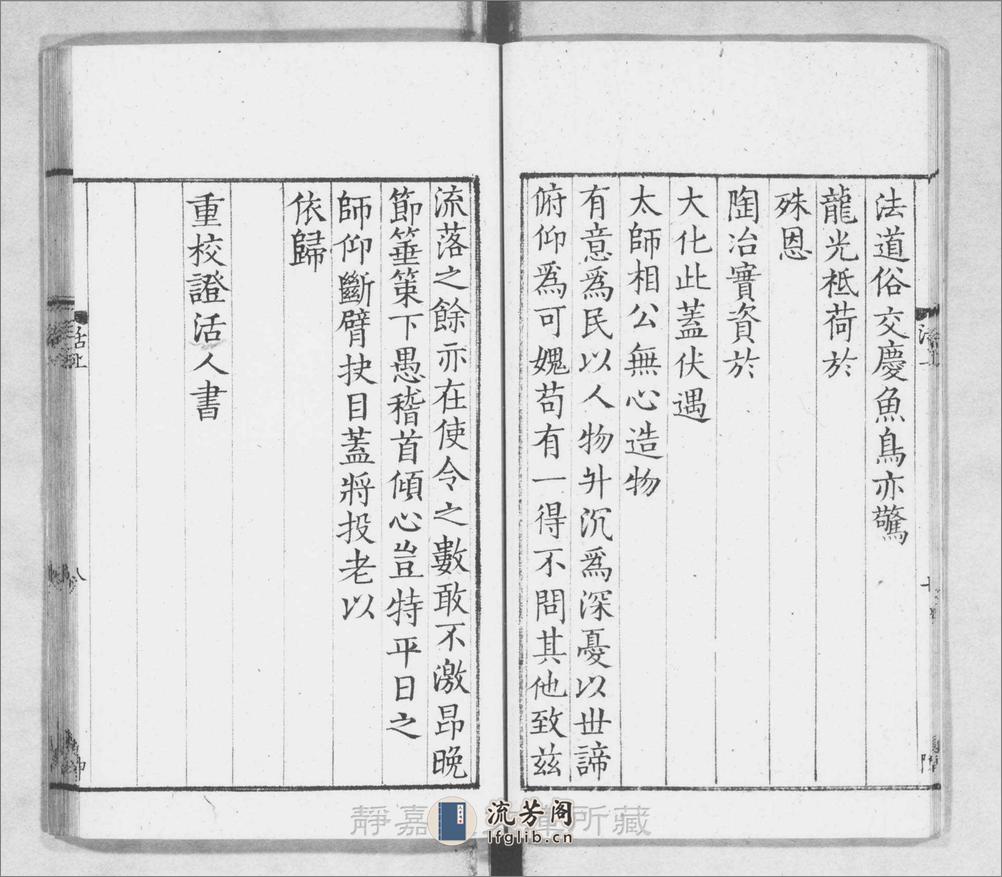 法道俗交慶魚鳥亦驚
龍光祗荷於
殊恩
陶冶實資於
大化此蓋伏遇
太師相公無心造物
有意爲民以人物升沉爲深憂以世諦
俯仰爲可媿苟有一得不問其他致茲
流落之餘亦在使令之數敢不激昂晚
節箠策下愚稽首傾心豈特平日之
師仰斷臂抉目蓋將投老以
依歸
重校證活人書
靜嘉
所藏
流芳阁
lfglib.cn